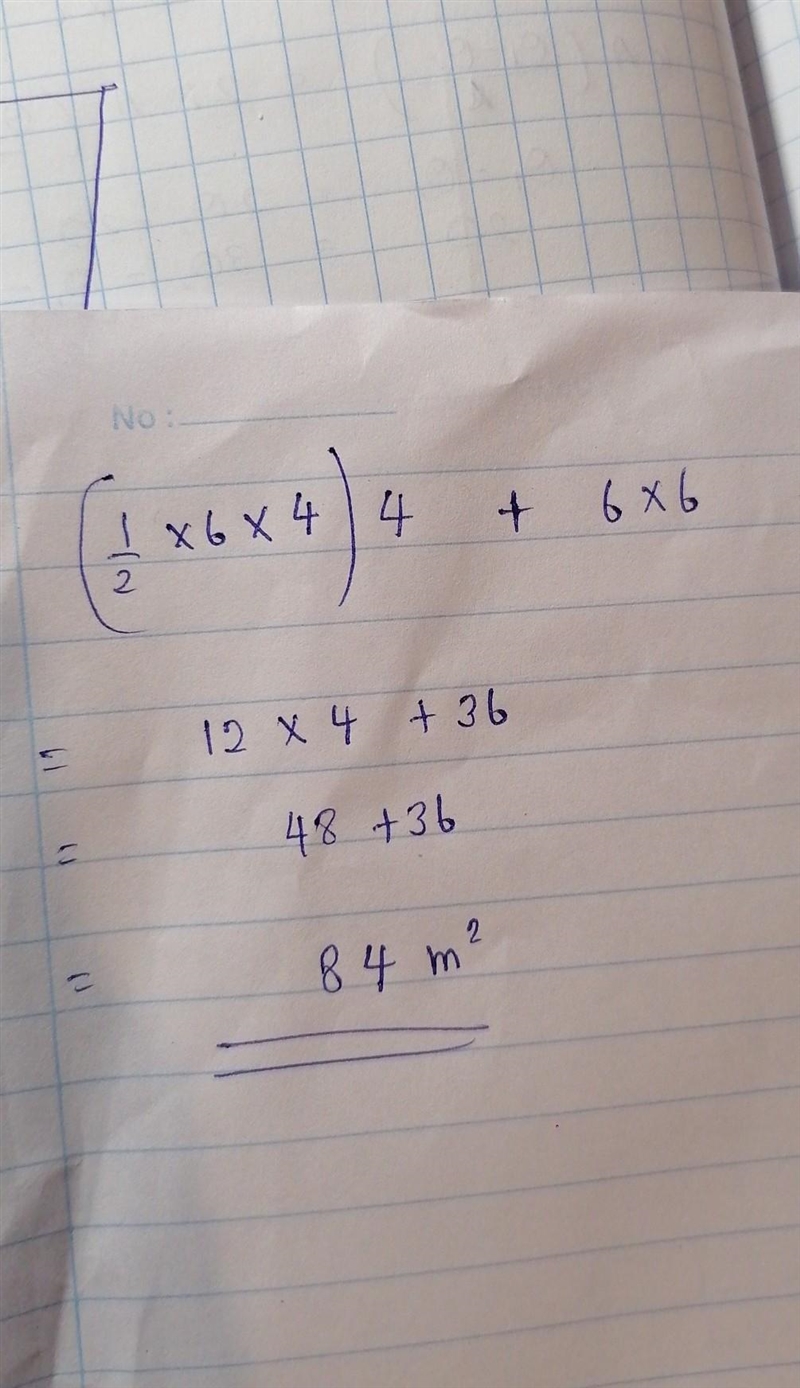 No :
(1/2 × 6 × 4) 4 + 6 × 6
= 12 × 4 + 36
= 48 + 36
= 84 m²